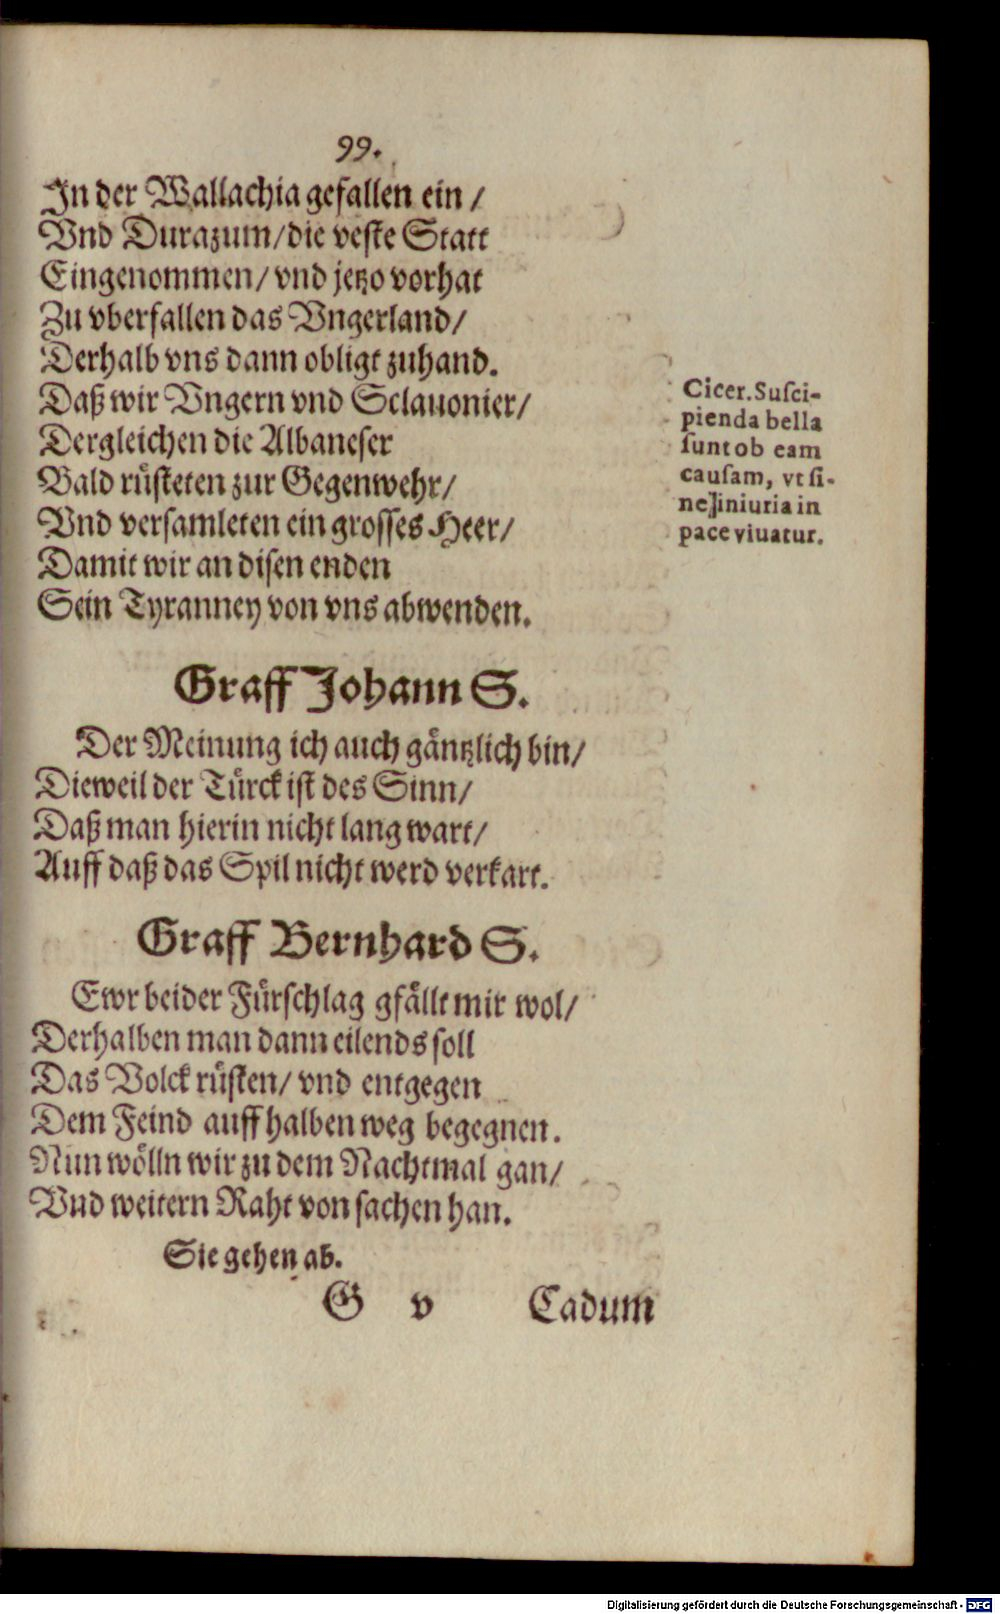 99.
In der Wallachia gefallen ein /
Vnd Durazum/ die veste Statt
Eingenommen/ vnd jetzo vorhat
Zu vberfallen das Vngerland/
Derhalb vns dann obligt zuhand.
Daß wir Vngern vnd Sclauonier/
Dergleichen die Albaneser
Bald rüsteten zur Gegenwehr/
Vnd versamleten ein grosses Heer/
Damit wir an disen enden
Sein Tyranney von vns abwenden.
Cicer. Susci-
pienda bella
sunt ob eam
causam, vt si-
ne iniuria in
pace viuatur.
Graff Johann S.
Der Meinung ich auch gäntzlich bin/
Dieweil der Türck ist des Sinn/
Daß man hierin nicht lang wart/
Auff daß das Spil nicht werd verkart.
Graff Bernhard S.
Ewr beider Fürschlag gfällt mir wol/
Derhalben man dann eilends soll
Das Volck rüsten/ vnd entgegen
Dem Feind auff halben weg begegnen.
Nun wölln wir zu dem Nachtmal gan/
Vnd weitern Raht von sachen han.
Sie gehen ab.
G v Cadum
Digitalisierung gefördert durch die Deutsche Forschungsgemeinschaft - DFG